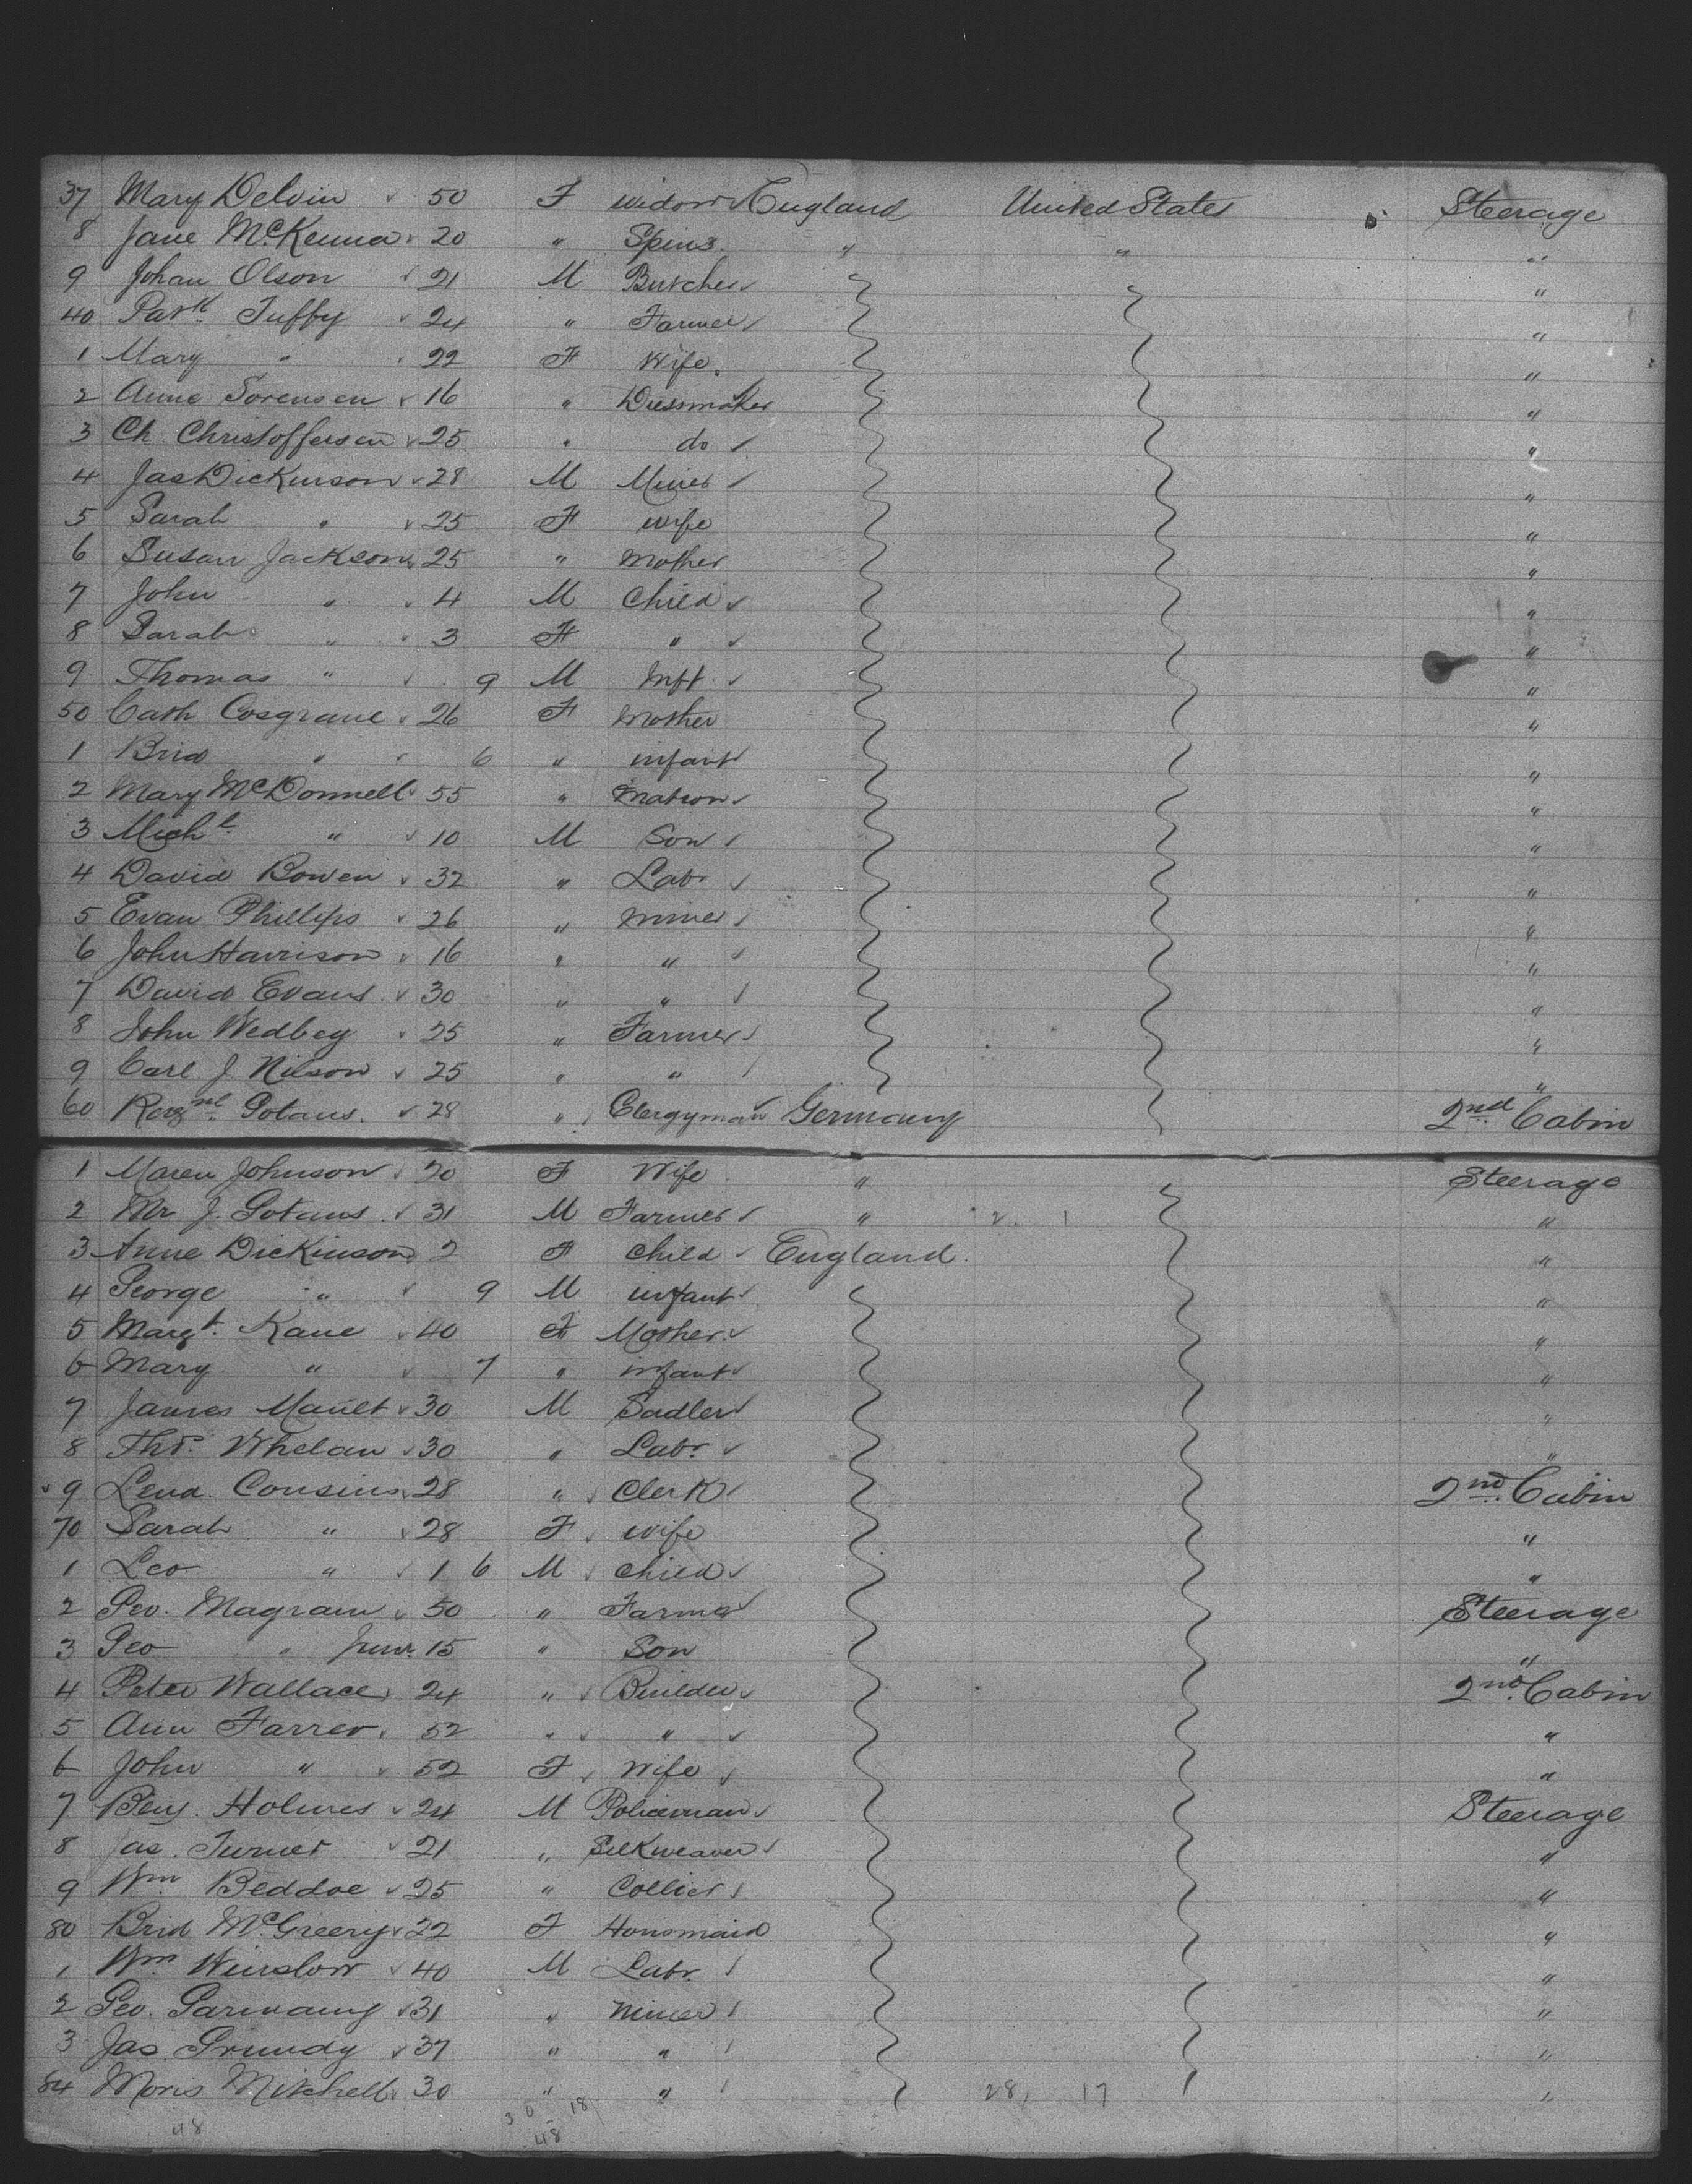 37 Mary Delvin 50 F widow England United States Steerage
8 Jane McKenna 20 " Spins. " " "
9 Johan Olson 21 M Butcher "
40 Patk Tuffy 24 " Farmer "
1 Mary " 22 F Wife "
2 Anne Sorensen 16 " Dressmaker "
3 Ch. Christoffersen 25 " do "
4 Jas Dickinson 28 M Miner "
5 Sarah " 25 F wife "
6 Susan Jackson 25 " Mother "
7 John " 4 M Child "
8 Sarah " 3 F " "
9 Thomas " 9 M Inft "
50 Cath Cosgrave 26 F Mother "
1 Brid " 6 " infant "
2 Mary McDonnell 55 " Matron "
3 Michl " 10 M Son "
4 David Bowen 32 " Labr "
5 Evan Phillips 26 " miner "
6 John Harrison 16 " " "
7 David Evans 30 " " "
8 John Wedbey 25 " Farmer "
9 Carl J. Nilson 25 " " "
60 Gotaus 28 " Clergyman Germany 2nd Cabin
1 Maren Johnson 20 F Wife " Steerage
2 Mr J. Gotaus 31 M Farmer " "
3 Anne Dickinson 2 F child England "
4 George " 9 M infant "
5 Margt. Kane 40 F Mother "
6 Mary " 7 " infant "
7 James Mault 30 M Sadler "
8 Thos. Whelan 30 " Labr. "
9 Cousins 28 " Clerk 2nd Cabin
70 Sarah " 28 F wife "
1 Leo " 1 6 M child "
2 Geo. Magram 50 " Farmer Steerage
3 Geo " Junr. 15 " Son "
4 Peter Wallace 24 " Builder 2nd Cabin
5 Ann Farrer 52 " " "
6 John " 52 F Wife "
7 Benj. Holmes 24 M Policeman Steerage
8 Jas. Turner 21 " Silkweaver "
9 Wm Beddoe 25 " Collier "
80 Brid McGreery 22 F Housmaid "
1 Wm Winslow 40 M Labr. "
2 Geo. 31 " Miner "
3 Jas Grundy 37 " " "
84 Moris Mitchell 30 " " 28, 17 "
48 30 18
48